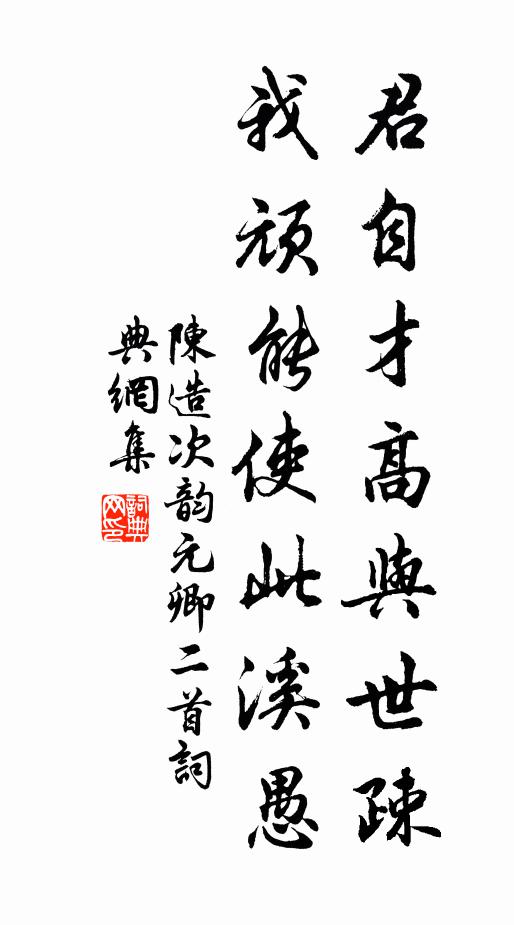 君自才高與世疎
我頑能使此溪愚
陳造次韵元卿二首詞
典網集
詞典
网印